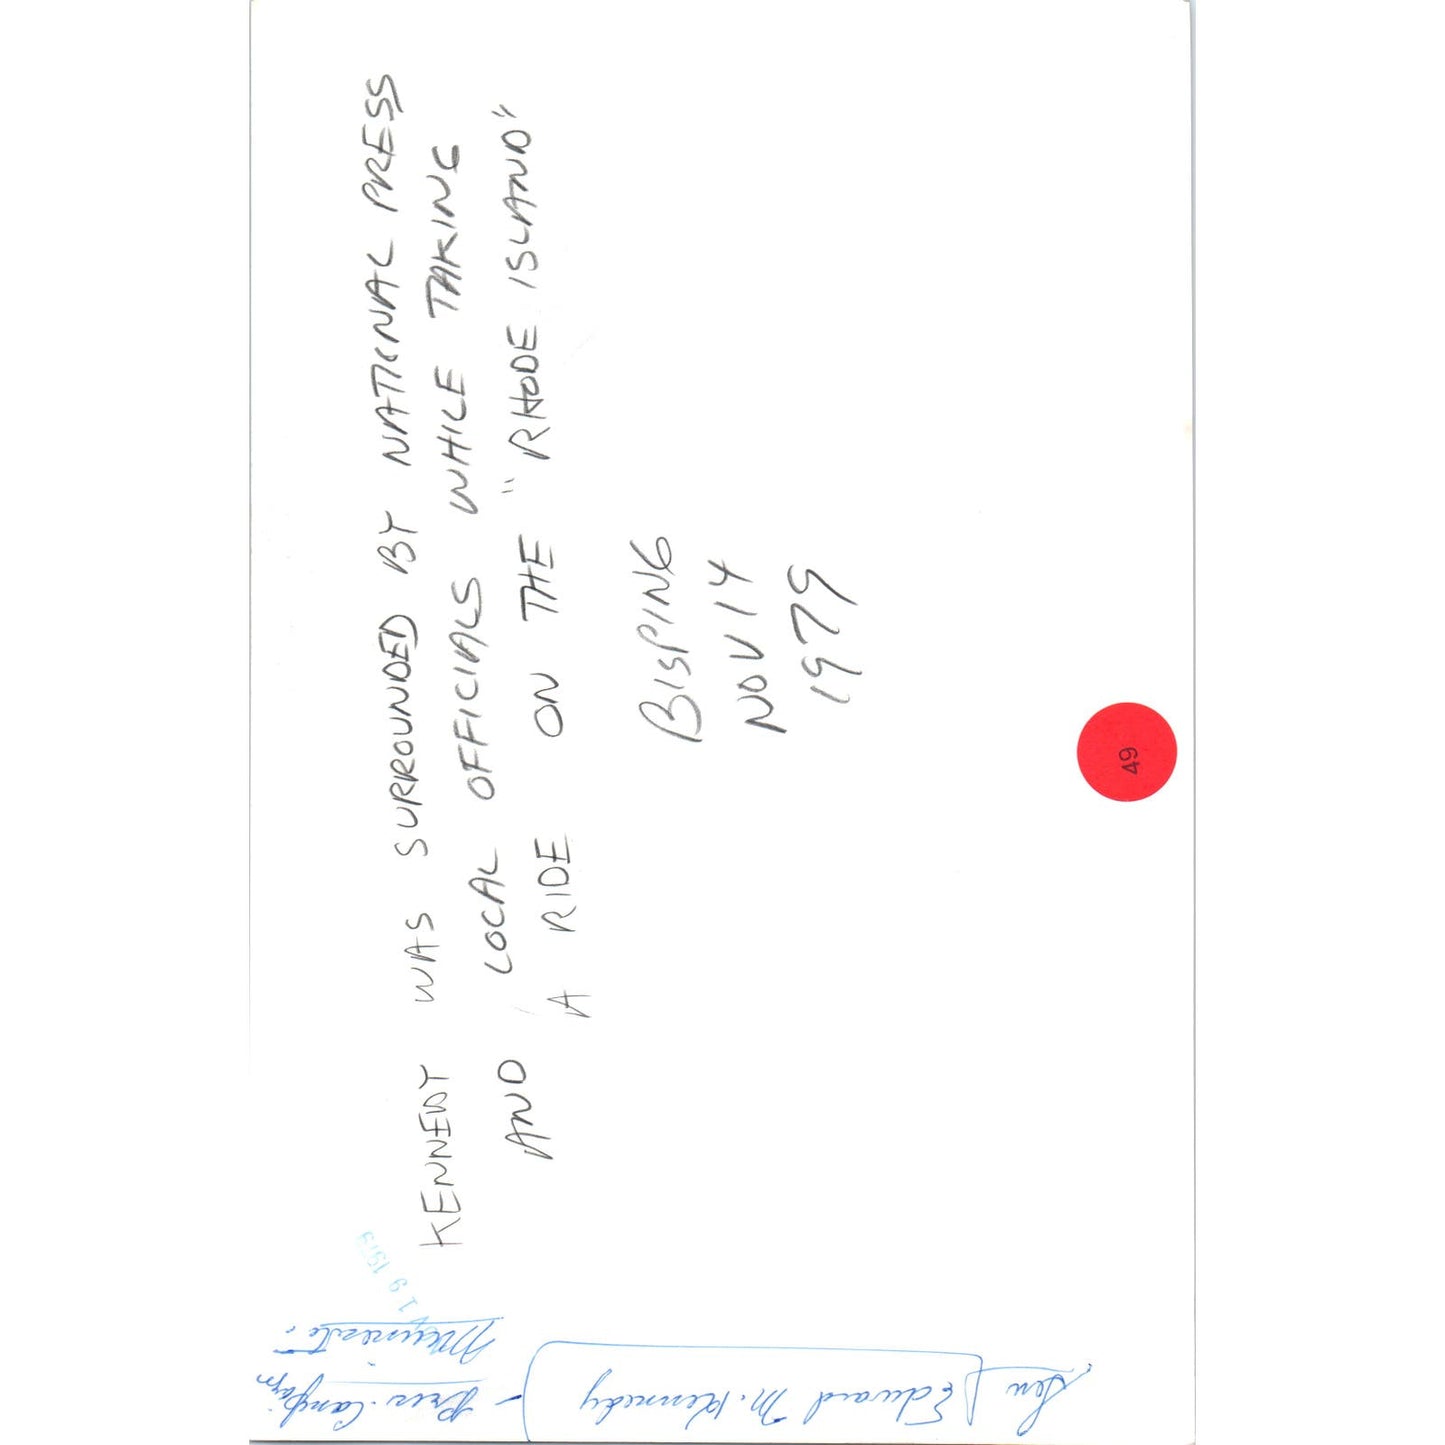 KENNEDY WAS SURROUNDED BY NATIONAL PRESS
AND LOCAL OFFICIALS WHILE TAKING
A RIDE ON THE "RHODE ISLAND"
BISPING
NOV 14
1979
49
19 1979
Sen Edward M. Kennedy
- Pres. Campaign